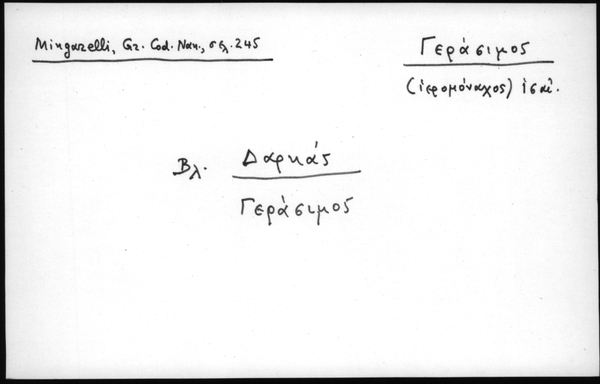 Mingarelli, Gr. Cod. Nan., σελ. 245
Γεράσιμος
(ἱερομόναχος) ις αἰ.
Βλ. Δαρκάς
Γεράσιμος